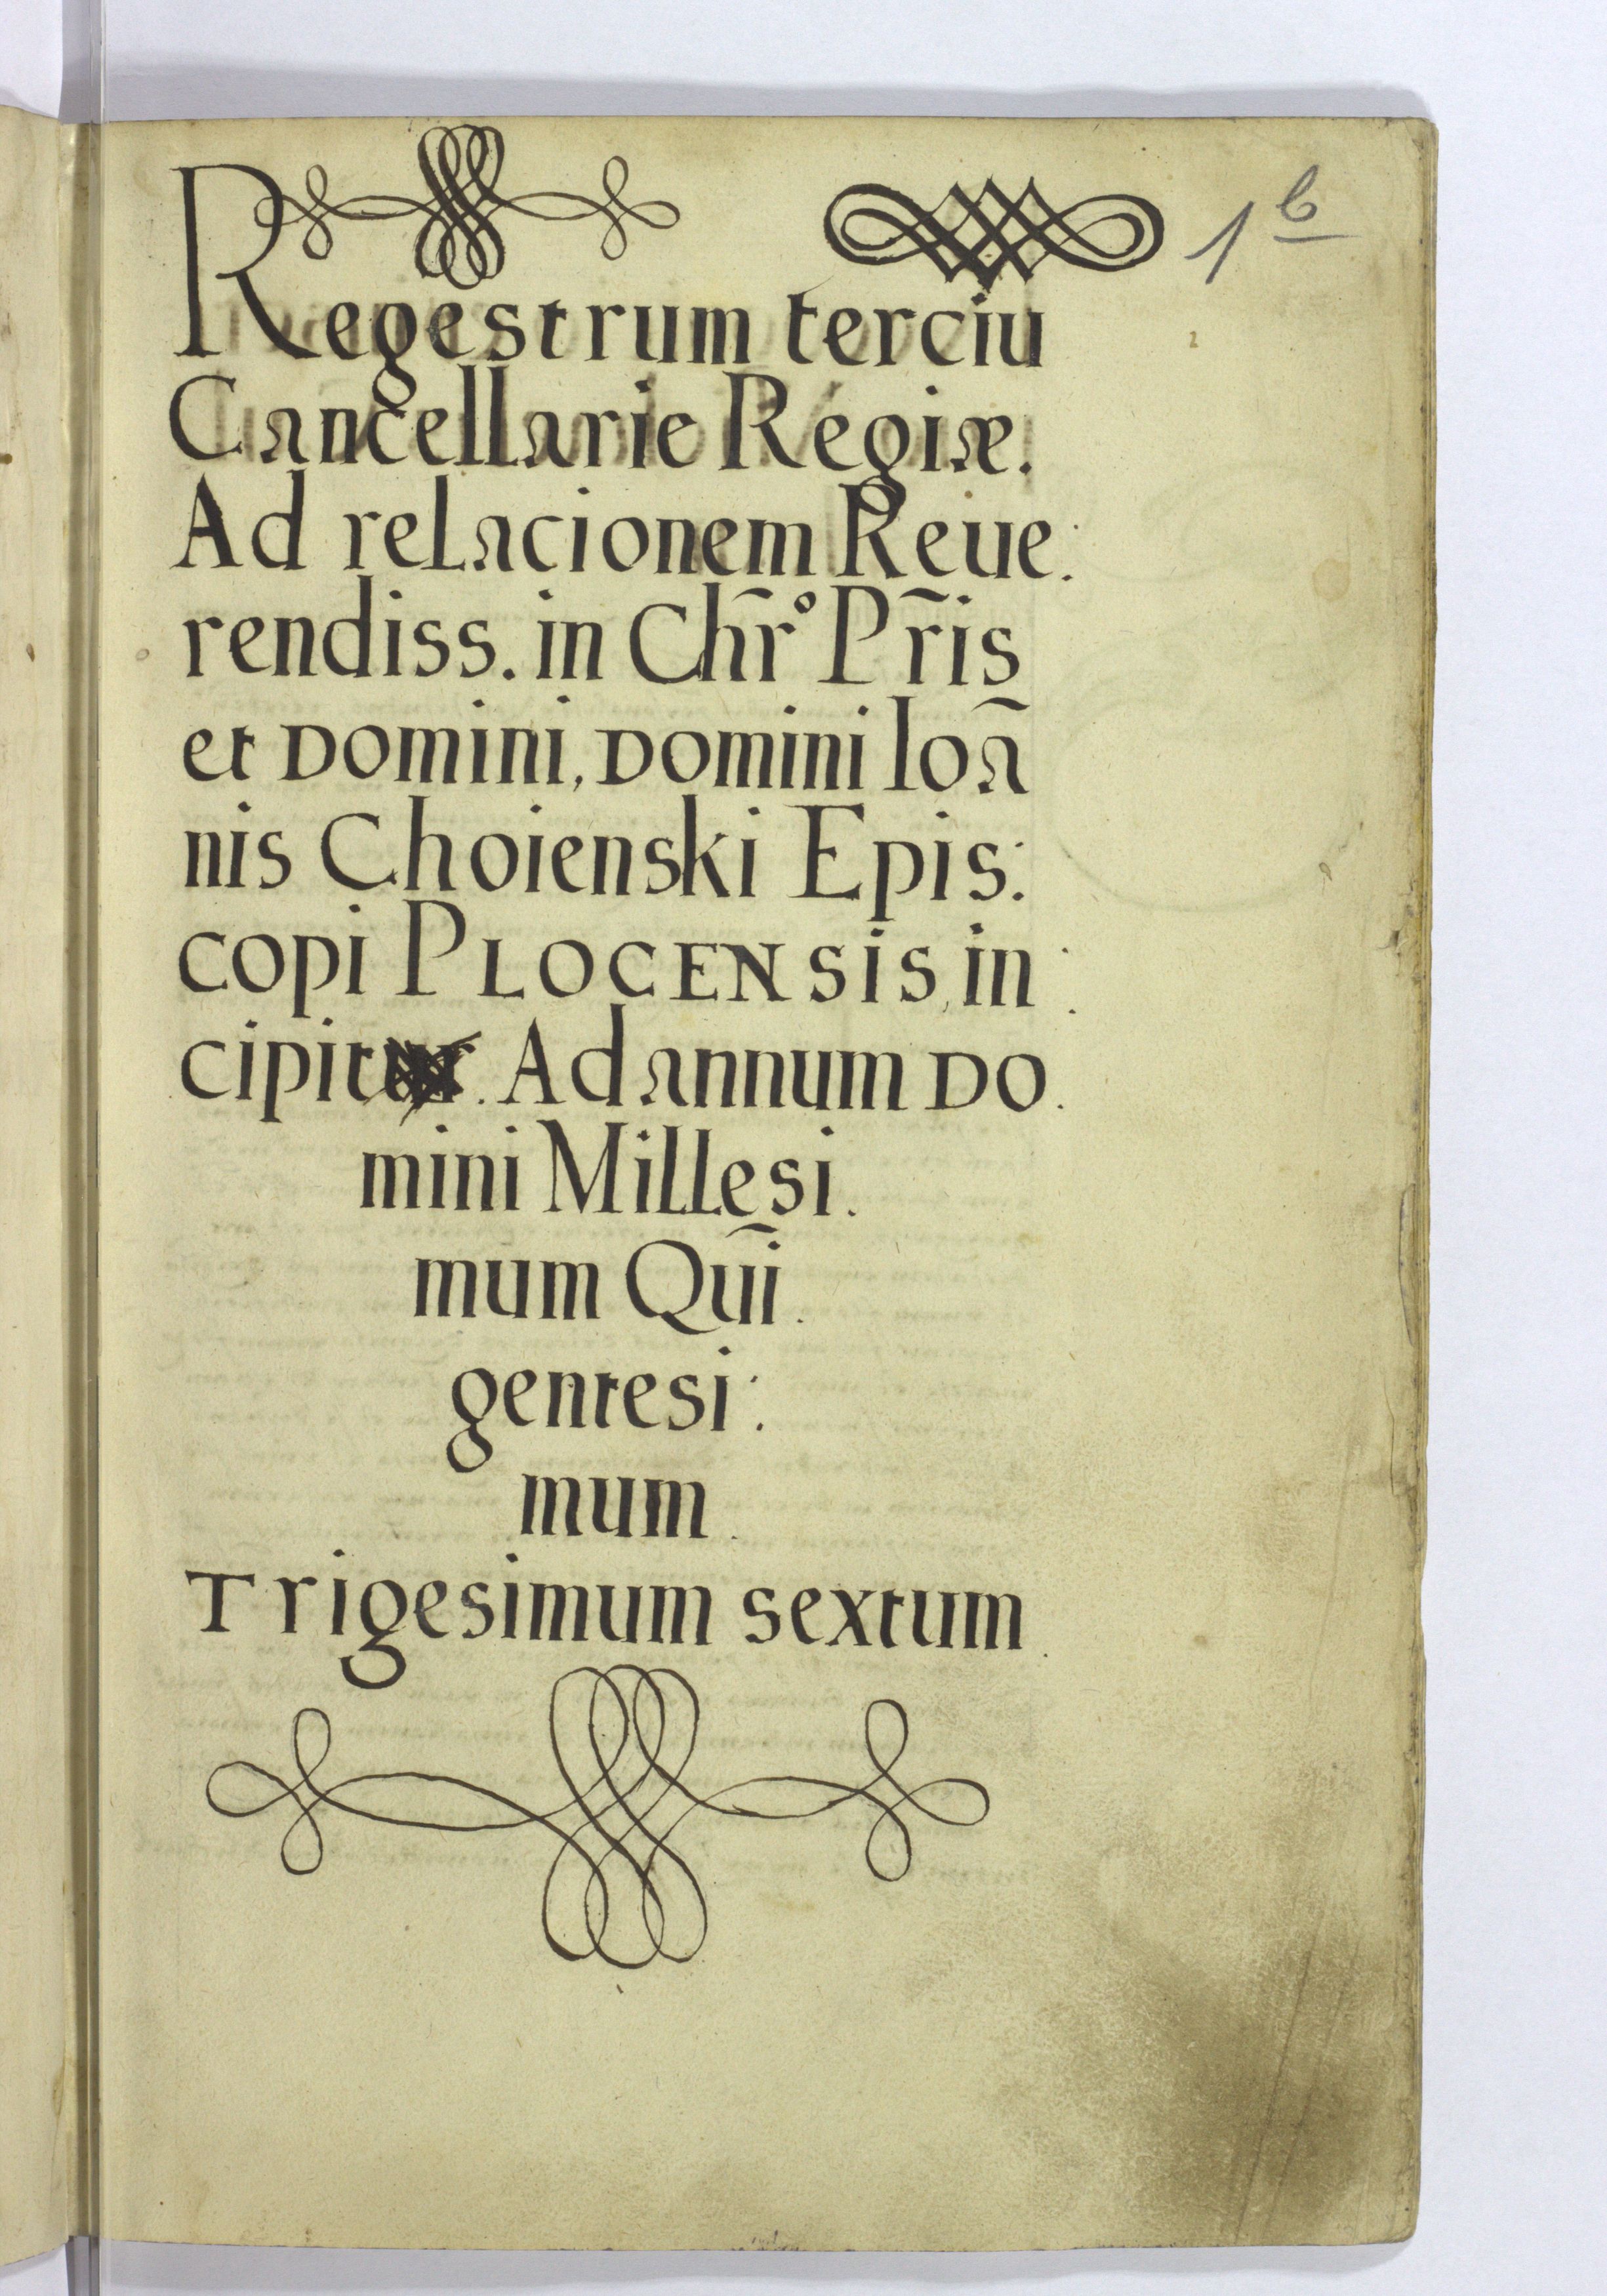 1 b
Regestrum terciu
Cancellarie Regiæ.
Ad relacionem Reue:
rendiss. in Chr̄º Pr̄is
et Domini, Domini Ioā
nis Choienski Epis:
copi PLOCENSIS, in:
cipit. Ad annum DO.
mini Millesi.
mum Quī.
gentesi:
mum.
Trigesimum sextum.